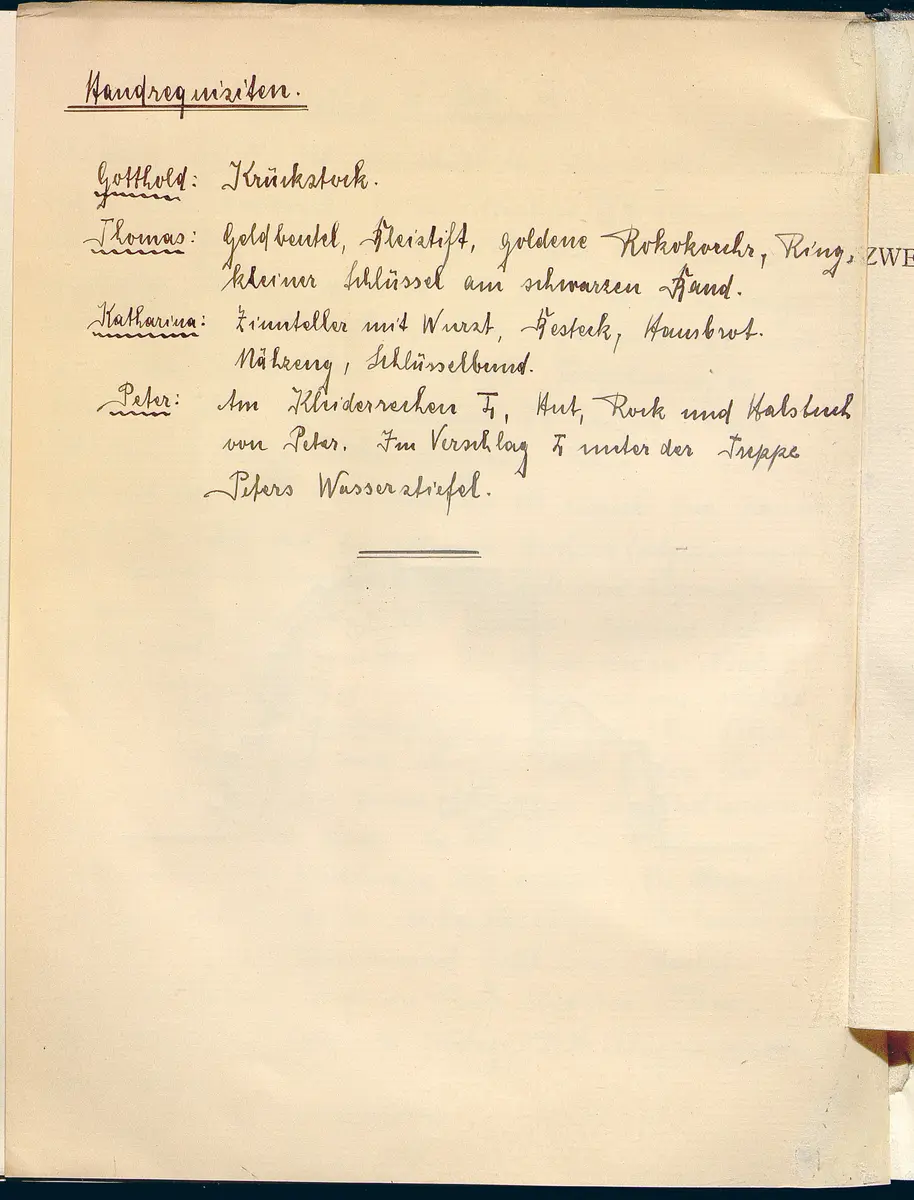 Handrequisiten.
Gotthold: Krückstock.
Thomas: Geldbeutel, Bleistift, goldene Rokokorehr, Ring,
kleiner Schlüssel am schwarzen Band.
Katharina: Zinnteller mit Wurst, Besteck, Hausbrot.
Nähzeug, Schlüsselbund.
Peter: Am Kleiderrechen I, Hut, Rock und Halstuch
von Peter. Im Verschlag I unter der Treppe
Peters Wasserstiefel.
ZWE